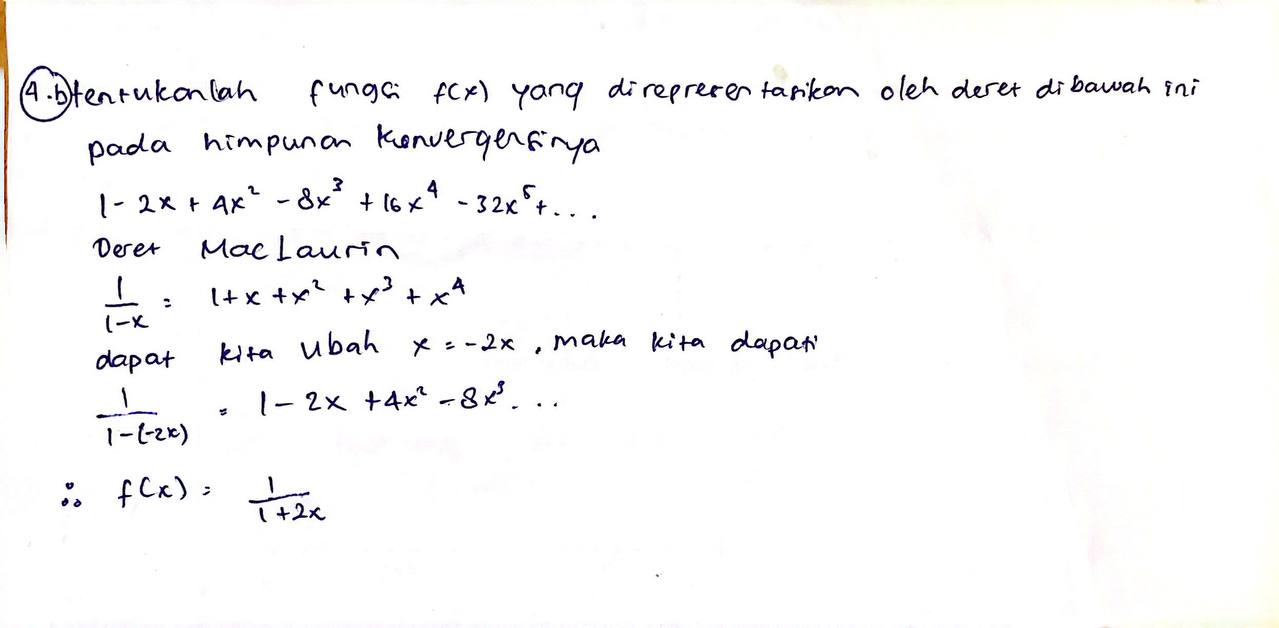 4.b) tentukanlah fungsi f(x) yang direpresentasikan oleh deret dibawah ini
pada himpunan konvergensinya
1 - 2x + 4x² - 8x³ + 16x⁴ - 32x⁵ + ...
Deret MacLaurin
1/(1-x) = 1 + x + x² + x³ + x⁴
dapat kita ubah x = -2x, maka kita dapati
1/(1-(-2x)) = 1 - 2x + 4x² - 8x³...
∴ f(x) = 1/(1+2x)